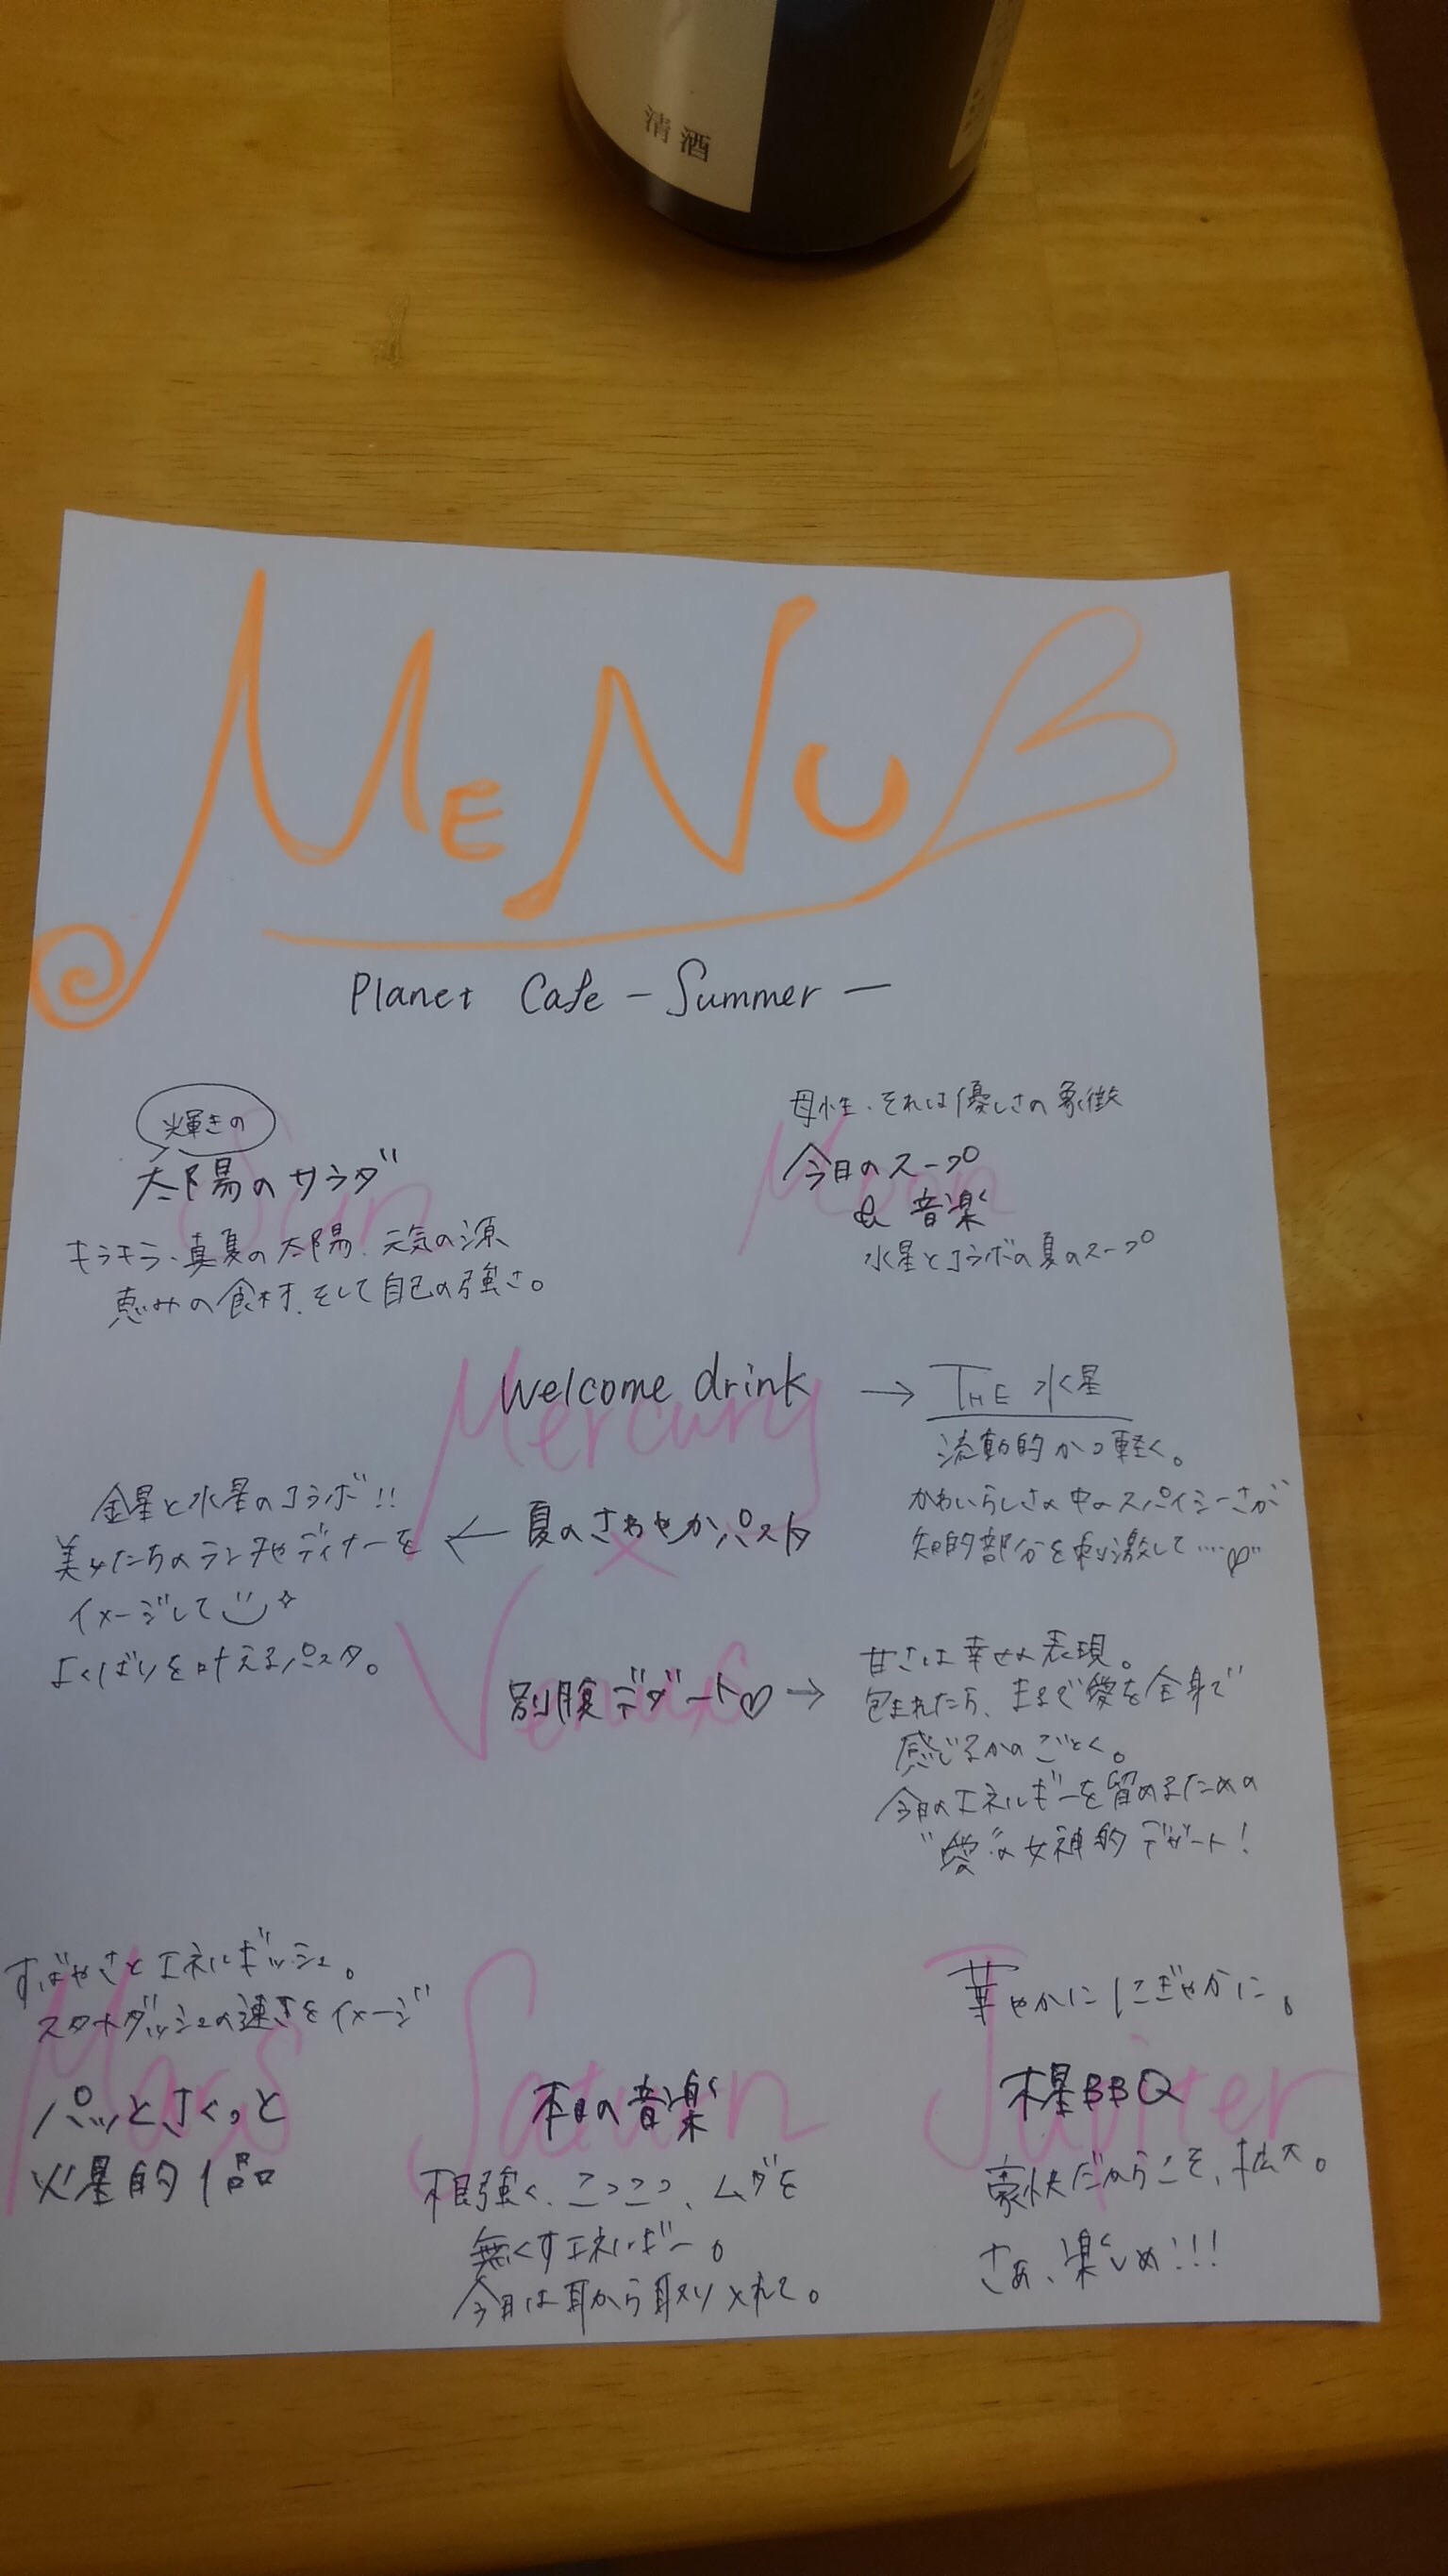 清酒
MENU B
Planet Cafe - Summer -
Sun
輝きの
太陽のサラダ
キラキラ、真夏の太陽、元気の源
恵みの食材、そして自己の強さ。
Moon
母性、それは優しさの象徴
今日のスープ
& 音楽
水星とコラボの夏のスープ
Mercury
Welcome drink → THE 水星
流動的かつ軽く。
かわいらしさの中のスパイシーさが
知的部分を刺激して....♡
夏のさわやかパスタ
←
金星と水星のコラボ!!
美女たちのランチやディナーを
イメージして
よくばりを叶えるパスタ。
×
Venus
別腹デザート♡→
甘さは幸せの表現。
包まれたら、まるで愛を全身で
感じるかのごとく。
今日のエネルギーを留めるための
"愛"の女神的デザート!
Mars
すばやさとエネルギッシュ。
スタートダッシュの速さをイメージ
パッとさくっと
火星的1品
Saturn
本日の音楽
根強く、こつこつ、ムダを
無くすエネルギー。
今日は耳から取り入れて。
Jupiter
華やかににぎやかに。
木星BBQ
豪快だからこそ、拡大。
さぁ、楽しめ!!!